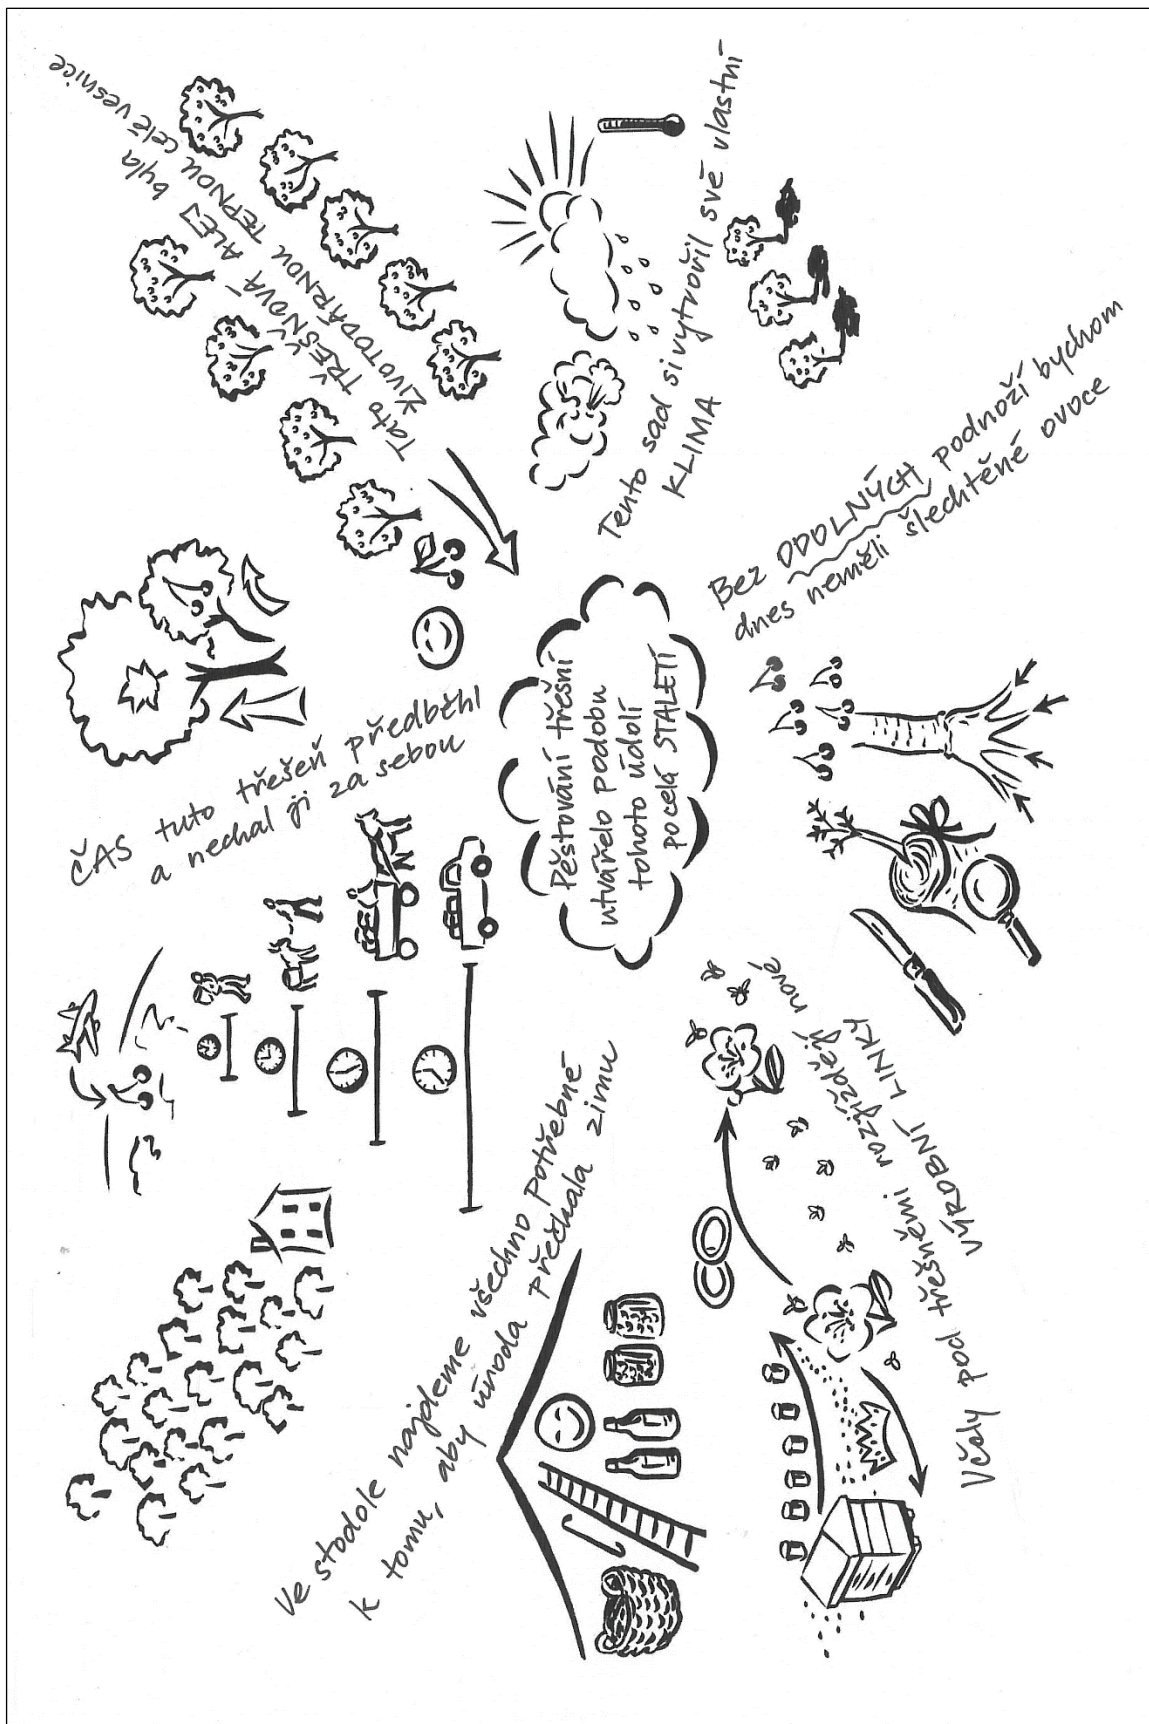 Pěstování třešní
utvářelo podobu
tohoto údolí
po celá STALETÍ
Tato TŘEŠŇOVÁ ALEJ byla
ŽIVOTODÁRNOU TEPNOU celé vesnice
Tento sad si vytvořil své vlastní
KLIMA
Bez ODOLNÝCH podnoží bychom
dnes neměli šlechtěné ovoce
Včely pod třešněmi rozjíždějí nové
VÝROBNÍ LINKY
Ve stodole najdeme všechno potřebné
k tomu, aby úroda přečkala zimu
ČAS tuto třešeň předběhl
a nechal ji za sebou